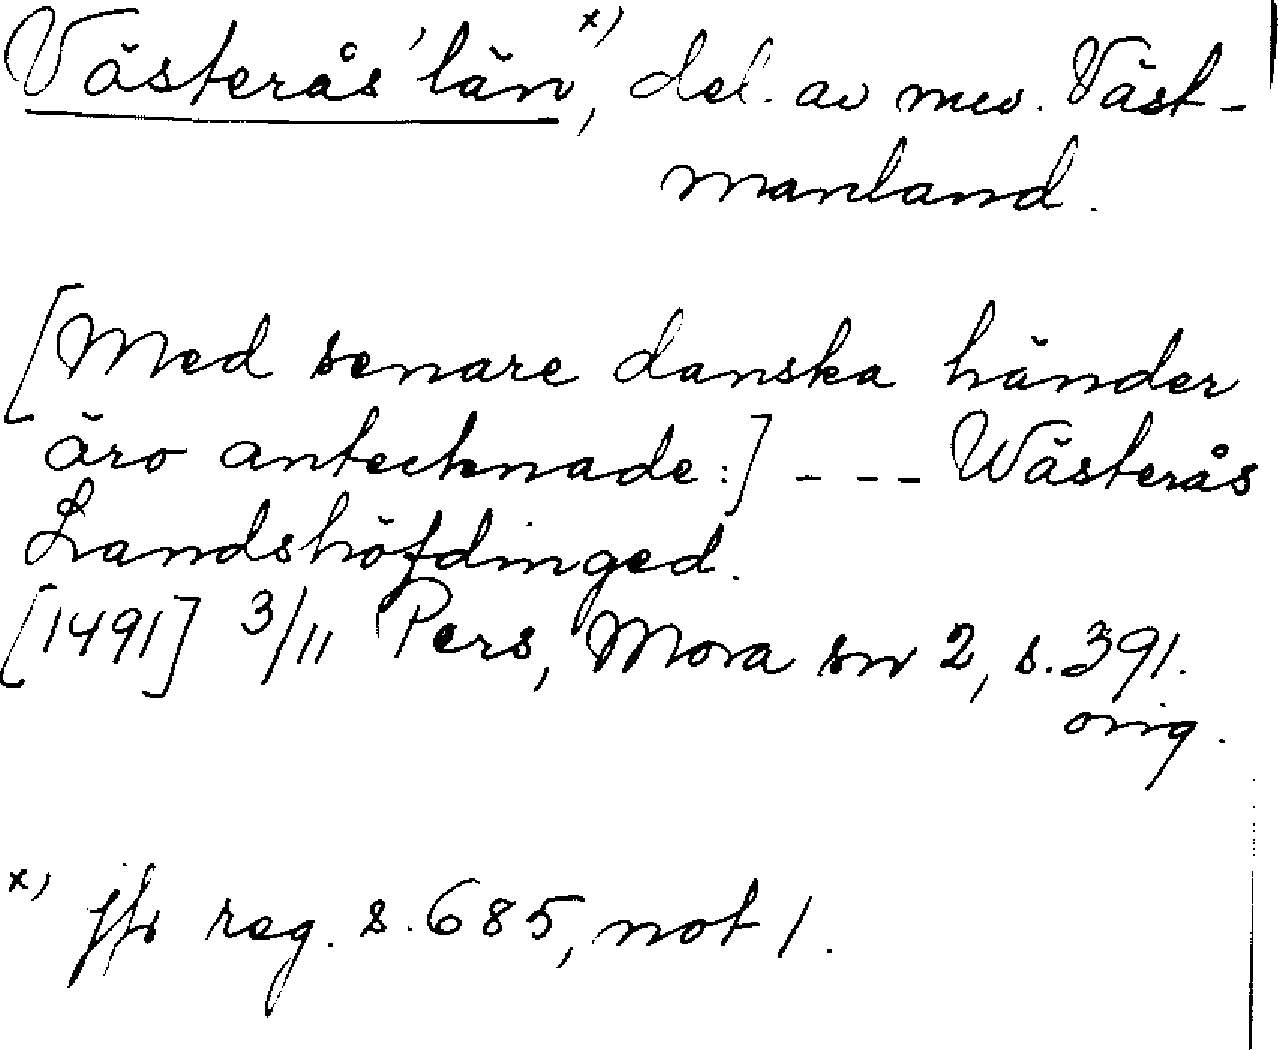 Västerås' län,x) del. av mev. Väst-
manland.
[Med senare danska händer
äro antecknade:] - - - Wästerås
Landshöfdinged.
[1491] 3/11 Pers, Mora sn 2, s. 391.
orig.
x) jfr reg. s. 685, not 1.